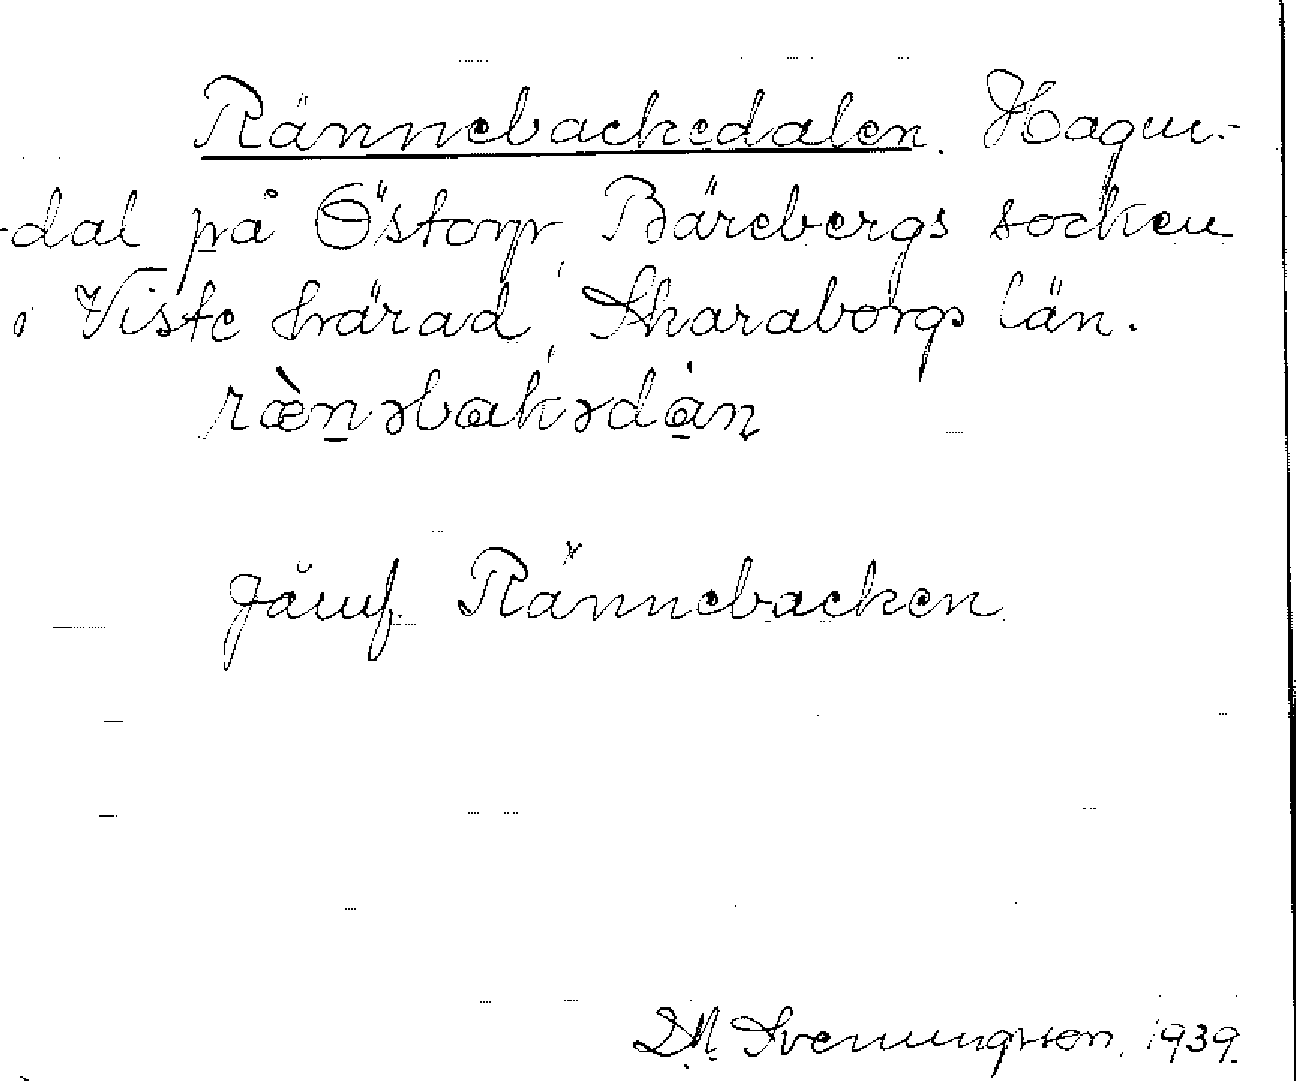 Rännebackedalen. Hagm.-
-dal på Östorp, Bärebergs socken
i Viste härad, Skaraborgs län.
ræ̀n̠əbakədàn̥
Jämf. Rännebacken.
D.N. Svenningsson. 1939.